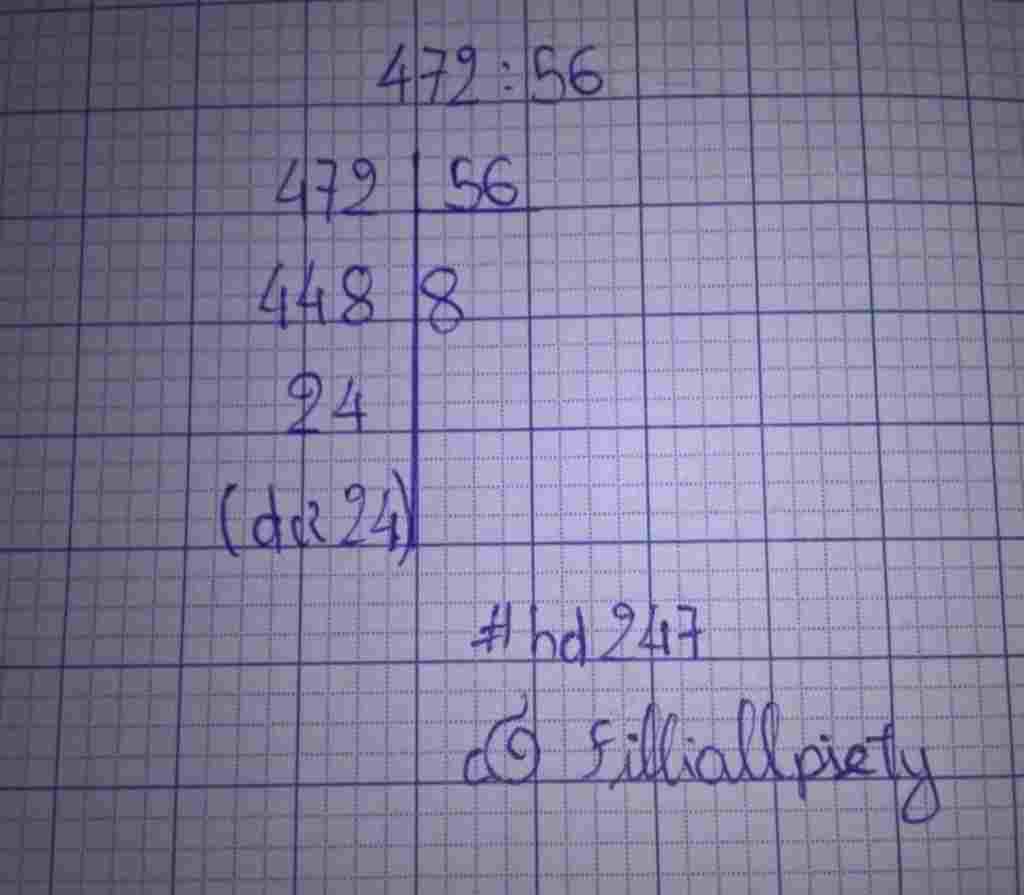 472:56
472 | 56
448 | 8
24
(dư 24)
#hd247
@ filliallpiety